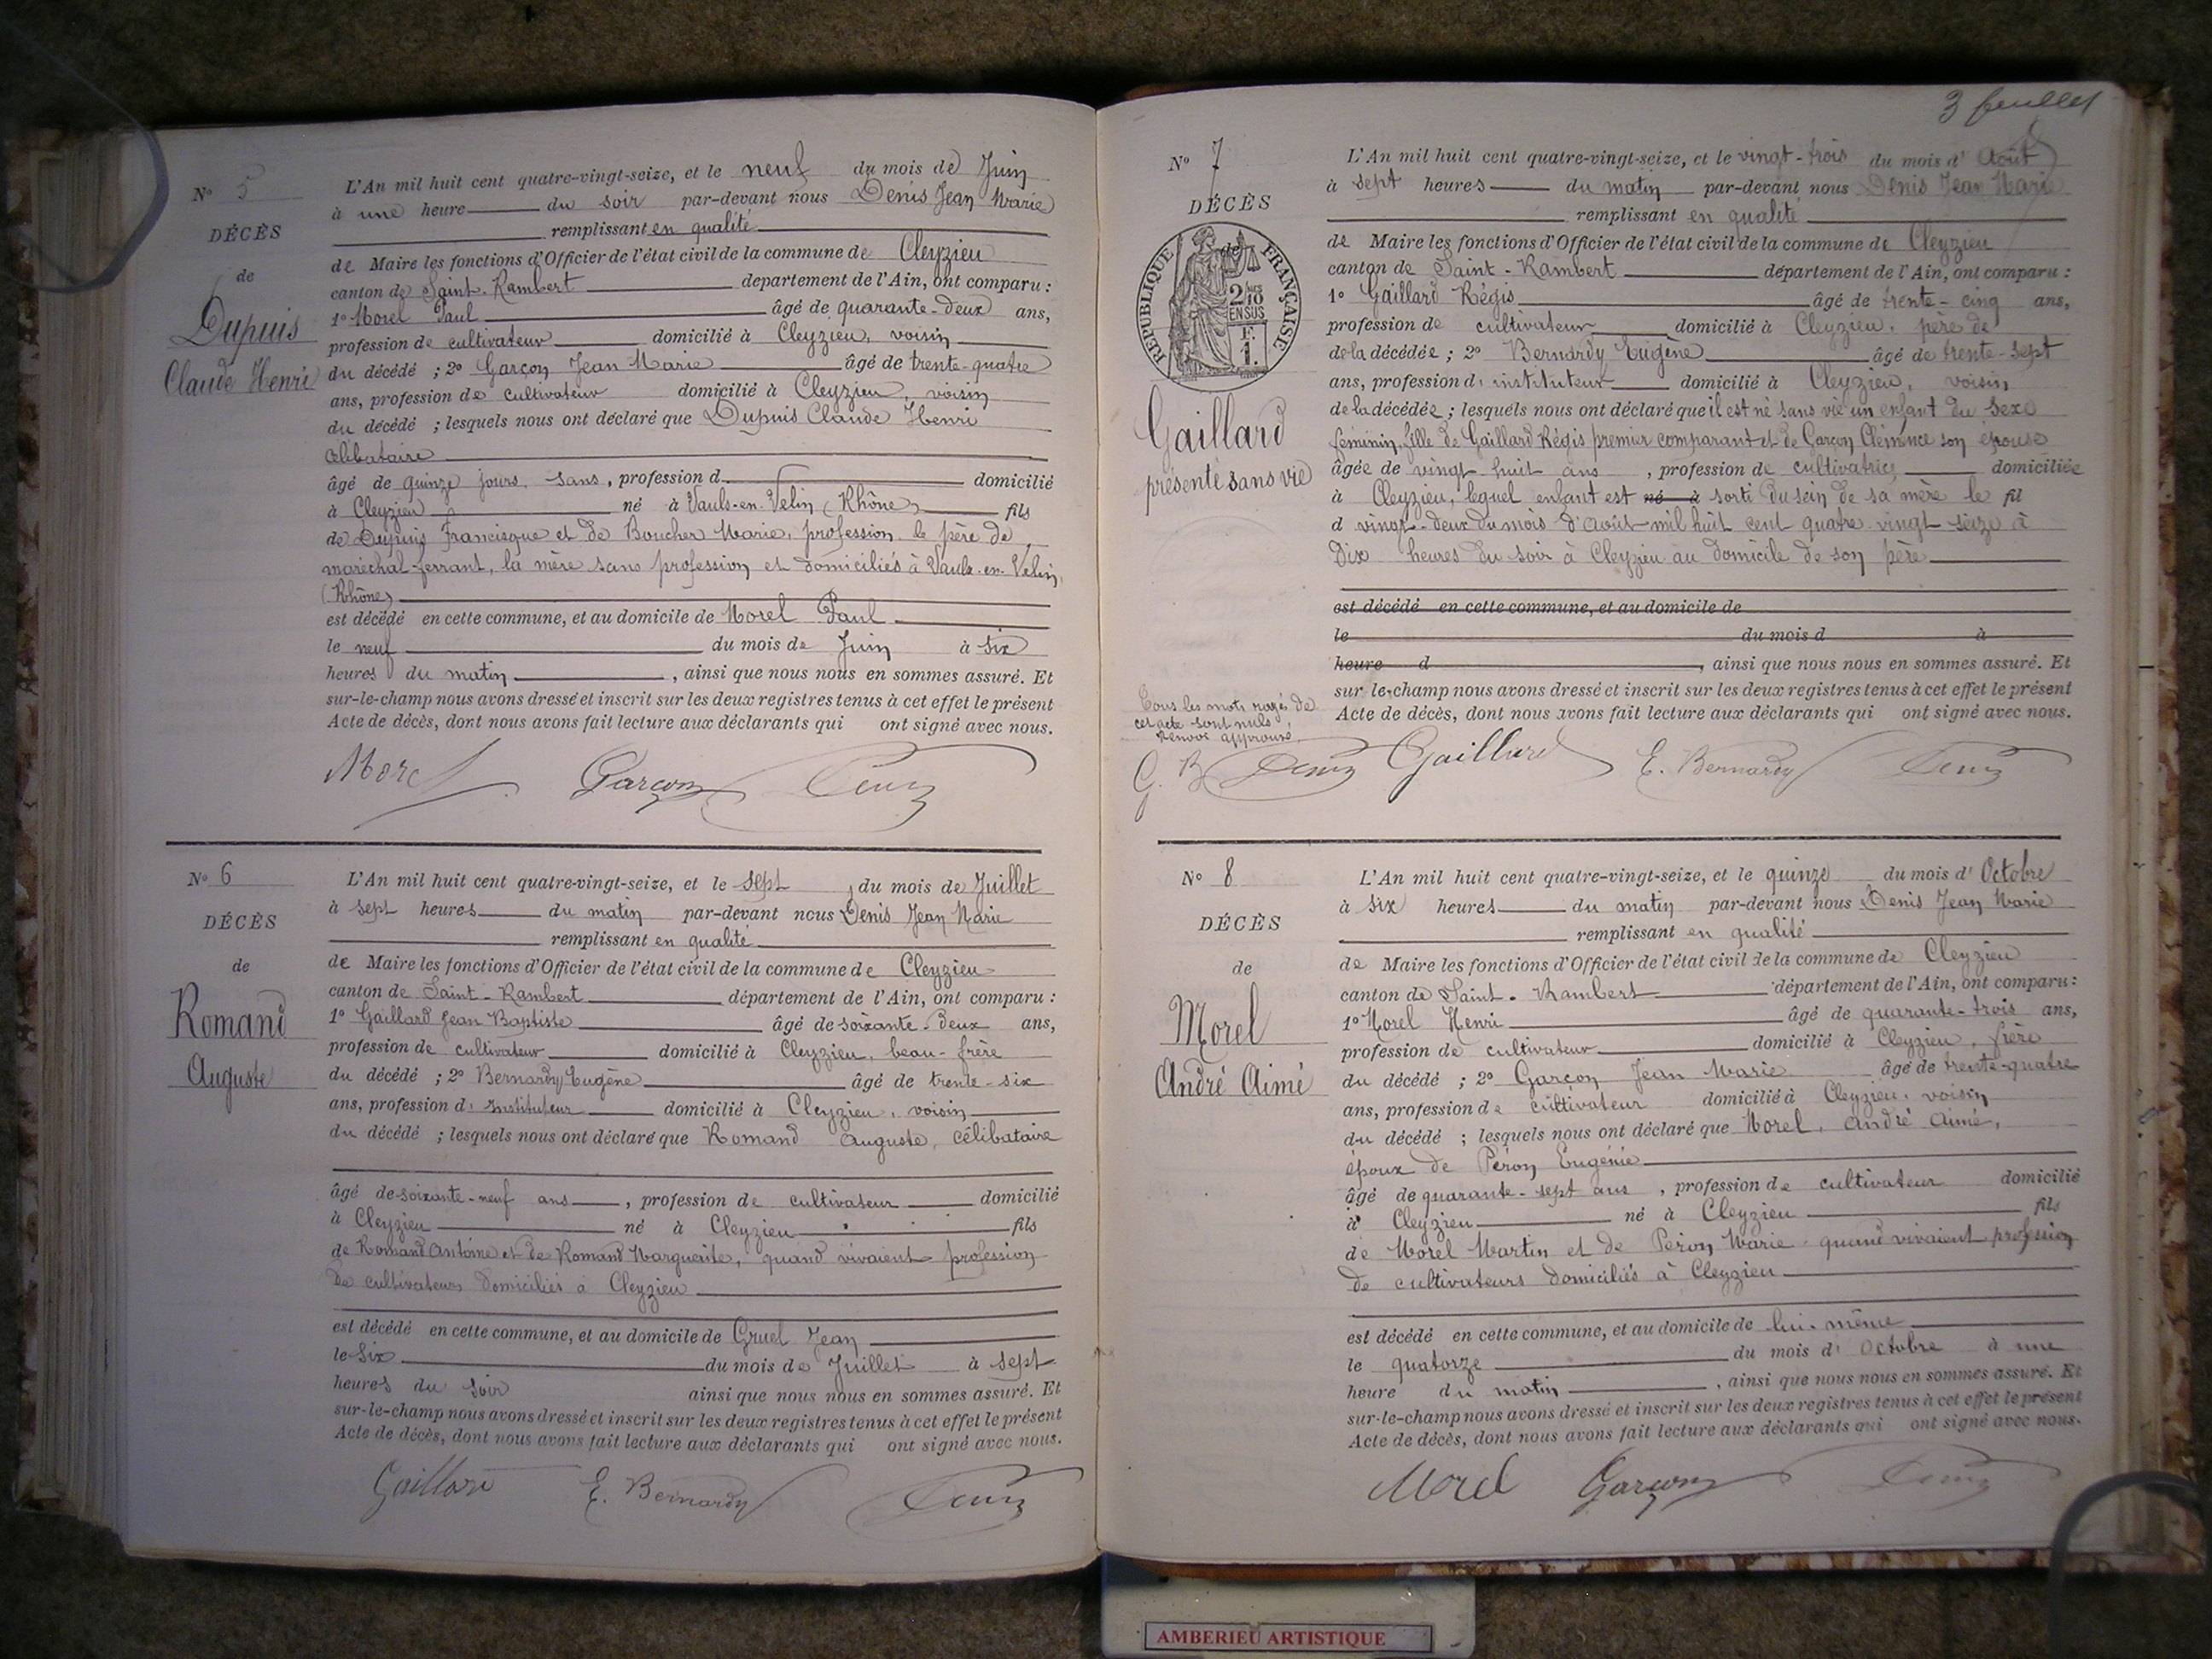 N° 5
DÉCÈS
de
Dupuis
Claude Henri
L'An mil huit cent quatre-vingt-seize, et le neuf du mois de Juin
à une heure du soir par-devant nous Denis Jean Marie
remplissant en qualité
de Maire les fonctions d'Officier de l'état civil de la commune de Cleyzieu
canton de Saint-Rambert departement de l'Ain, ont comparu :
1° Morel Paul âgé de quarante-deux ans,
profession de cultivateur domicilié à Cleyzieu, voisin
du décédé ; 2° Garçon Jean Marie âgé de trente-quatre
ans, profession de cultivateur domicilié à Cleyzieu, voisin
du décédé ; lesquels nous ont déclaré que Dupuis Claude Henri
célibataire
âgé de quinze jours, sans, profession d domicilié
à Cleyzieu né à Vaulx-en-Velin (Rhône) fils
de Dupuis Francisque et de Boucher Marie, profession le père de
maréchal-ferrant, la mère sans profession et domiciliés à Vaulx-en-Velin,
(Rhône)
est décédé en cette commune, et au domicile de Morel Paul
le neuf du mois de Juin à six
heures du matin, ainsi que nous nous en sommes assuré. Et
sur-le-champ nous avons dressé et inscrit sur les deux registres tenus à cet effet le présent
Acte de décès, dont nous avons fait lecture aux déclarants qui ont signé avec nous.
Morel Garçon Denis
N° 6
DÉCÈS
de
Romand
Auguste
L'An mil huit cent quatre-vingt-seize, et le sept du mois de Juillet
à sept heures du matin par-devant nous Denis Jean Marie
remplissant en qualité
de Maire les fonctions d'Officier de l'état civil de la commune de Cleyzieu
canton de Saint-Rambert département de l'Ain, ont comparu :
1° Gaillard Jean Baptiste âgé de soixante-deux ans,
profession de cultivateur domicilié à Cleyzieu, beau-frère
du décédé ; 2° Bernardy Eugène âgé de trente-six
ans, profession d'instituteur domicilié à Cleyzieu, voisin
du décédé ; lesquels nous ont déclaré que Romand Auguste, célibataire
âgé de soixante-neuf ans, profession de cultivateur domicilié
à Cleyzieu né à Cleyzieu fils
de Romand Antoine et de Romand Marguerite, quand vivaient profession
de cultivateurs domiciliés à Cleyzieu
est décédé en cette commune, et au domicile de Gruel Jean
le six du mois de Juillet à sept
heures du soir ainsi que nous nous en sommes assuré. Et
sur-le-champ nous avons dressé et inscrit sur les deux registres tenus à cet effet le présent
Acte de décès, dont nous avons fait lecture aux déclarants qui ont signé avec nous.
Gaillard E. Bernardy Denis
3 feuillet
N° 7
DÉCÈS
de
RÉPUBLIQUE FRANÇAISE
2/10 EN SUS
F. 1.
Gaillard
présenté sans vie
L'An mil huit cent quatre-vingt-seize, et le vingt-trois du mois d'Août
à sept heures du matin par-devant nous Denis Jean Marie
remplissant en qualité
de Maire les fonctions d'Officier de l'état civil de la commune de Cleyzieu
canton de Saint-Rambert département de l'Ain, ont comparu :
1° Gaillard Régis âgé de trente-cinq ans,
profession de cultivateur domicilié à Cleyzieu, père de
de la décédée ; 2° Bernardy Eugène âgé de trente-sept
ans, profession d'instituteur domicilié à Cleyzieu, voisin
de la décédée ; lesquels nous ont déclaré que il est né sans vie un enfant du sexe
féminin, fille de Gaillard Régis premier comparant et de Garçon Clémence son épouse
âgée de vingt-huit ans, profession de cultivatrice domiciliée
à Cleyzieu, lequel enfant est né à sorti du sein de sa mère le fil
d vingt-deux du mois d'août mil huit cent quatre-vingt-seize à
dix heures du soir à Cleyzieu au domicile de son père
est décédé en cette commune, et au domicile de
le du mois d à
heure d, ainsi que nous nous en sommes assuré. Et
sur-le-champ nous avons dressé et inscrit sur les deux registres tenus à cet effet le présent
Acte de décès, dont nous avons fait lecture aux déclarants qui ont signé avec nous.
Tous les mots rayés de
cet acte sont nuls
Renvoi approuvé
G. B Denis Gaillard E. Bernardy Denis
N° 8
DÉCÈS
de
Morel
André Aimé
L'An mil huit cent quatre-vingt-seize, et le quinze du mois d'Octobre
à six heures du matin par-devant nous Denis Jean Marie
remplissant en qualité
de Maire les fonctions d'Officier de l'état civil de la commune de Cleyzieu
canton de Saint-Rambert département de l'Ain, ont comparu :
1° Morel Henri âgé de quarante-trois ans,
profession de cultivateur domicilié à Cleyzieu, frère
du décédé ; 2° Garçon Jean Marie âgé de trente-quatre
ans, profession de cultivateur domicilié à Cleyzieu, voisin
du décédé ; lesquels nous ont déclaré que Morel, André Aimé,
époux de Péron Eugénie
âgé de quarante-sept ans, profession de cultivateur domicilié
à Cleyzieu né à Cleyzieu fils
de Morel Martin et de Péron Marie quand vivaient profession
de cultivateurs domiciliés à Cleyzieu
est décédé en cette commune, et au domicile de lui-même
le quatorze du mois d'Octobre à une
heure du matin, ainsi que nous nous en sommes assuré. Et
sur-le-champ nous avons dressé et inscrit sur les deux registres tenus à cet effet le présent
Acte de décès, dont nous avons fait lecture aux déclarants qui ont signé avec nous.
Morel Garçon Denis
AMBERIEU ARTISTIQUE